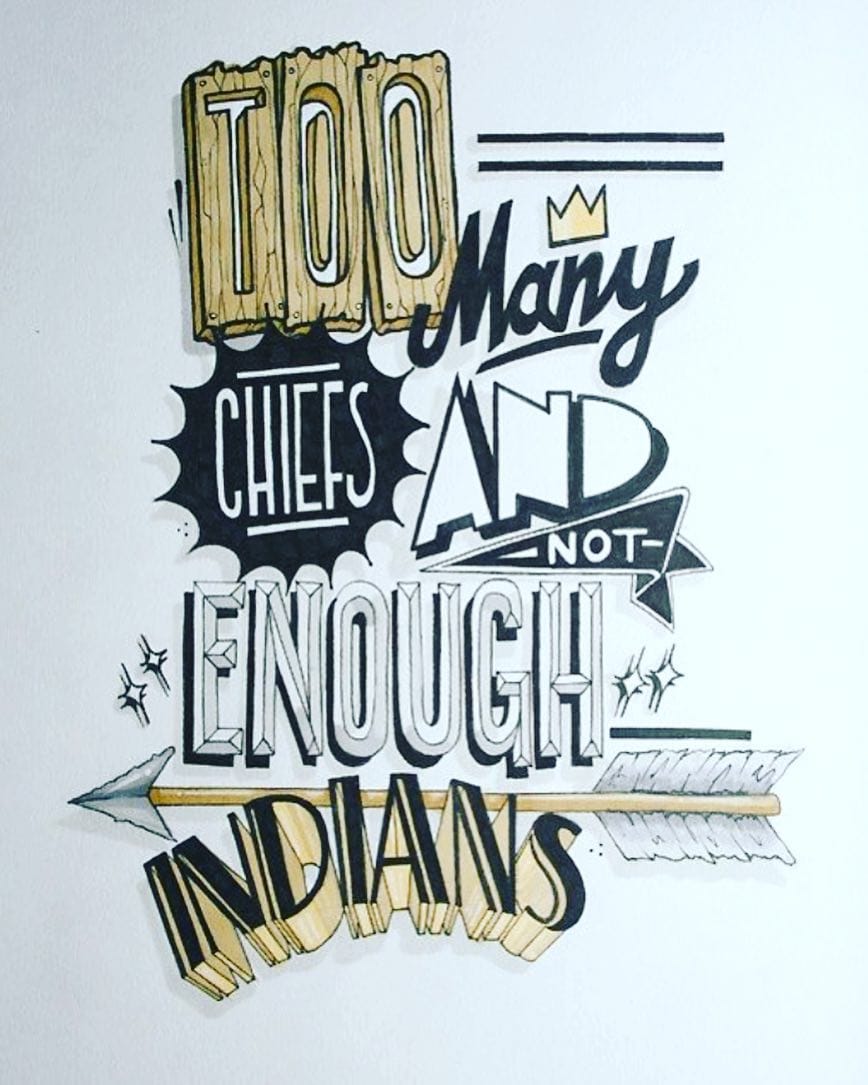 TOO
Many
CHIEFS
AND
NOT
ENOUGH
INDIANS